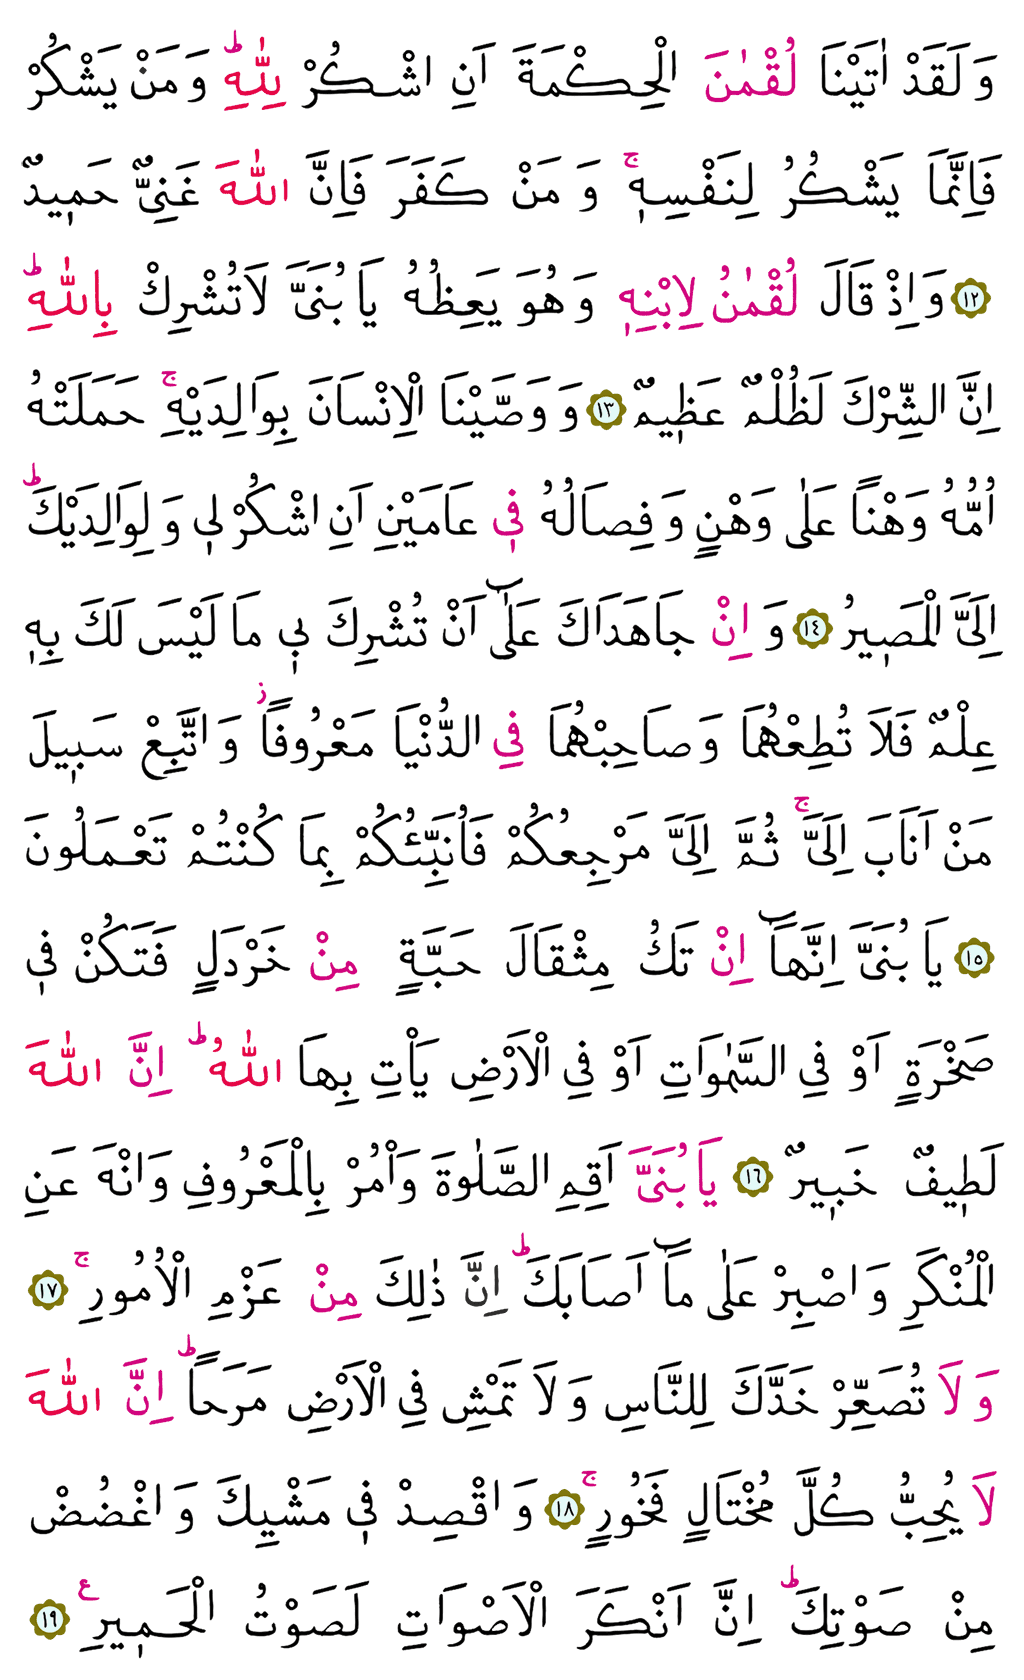 وَلَقَدْ اٰتَيْنَا لُقْمٰنَ الْحِكْمَةَ اَنِ اشْكُرْ لِلّٰهِؕ وَمَنْ يَشْكُرْ
فَاِنَّمَا يَشْكُرُ لِنَفْسِه۪ۚ وَمَنْ كَفَرَ فَاِنَّ اللّٰهَ غَنِيٌّ حَم۪يدٌ
﴿١٢﴾ وَاِذْ قَالَ لُقْمٰنُ لِابْنِه۪ وَهُوَ يَعِظُهُ يَا بُنَيَّ لَا تُشْرِكْ بِاللّٰهِؕ
اِنَّ الشِّرْكَ لَظُلْمٌ عَظ۪يمٌ ﴿١٣﴾ وَوَصَّيْنَا الْاِنْسَانَ بِوَالِدَيْهِۚ حَمَلَتْهُ
اُمُّهُ وَهْنًا عَلٰى وَهْنٍ وَفِصَالُهُ ف۪ي عَامَيْنِ اَنِ اشْكُرْ ل۪ي وَلِوَالِدَيْكَؕ
اِلَيَّ الْمَص۪يرُ ﴿١٤﴾ وَاِنْ جَاهَدَاكَ عَلٰٓى اَنْ تُشْرِكَ ب۪ي مَا لَيْسَ لَكَ بِه۪
عِلْمٌ فَلَا تُطِعْهُمَا وَصَاحِبْهُمَا فِي الدُّنْيَا مَعْرُوفًاؗ وَاتَّبِعْ سَب۪يلَ
مَنْ اَنَابَ اِلَيَّۚ ثُمَّ اِلَيَّ مَرْجِعُكُمْ فَاُنَبِّئُكُمْ بِمَا كُنْتُمْ تَعْمَلُونَ
﴿١٥﴾ يَا بُنَيَّ اِنَّهَٓا اِنْ تَكُ مِثْقَالَ حَبَّةٍ مِنْ خَرْدَلٍ فَتَكُنْ ف۪ي
صَخْرَةٍ اَوْ فِي السَّمٰوَاتِ اَوْ فِي الْاَرْضِ يَأْتِ بِهَا اللّٰهُؕ اِنَّ اللّٰهَ
لَط۪يفٌ خَب۪يرٌ ﴿١٦﴾ يَا بُنَيَّ اَقِمِ الصَّلٰوةَ وَأْمُرْ بِالْمَعْرُوفِ وَانْهَ عَنِ
الْمُنْكَرِ وَاصْبِرْ عَلٰى مَٓا اَصَابَكَؕ اِنَّ ذٰلِكَ مِنْ عَزْمِ الْاُمُورِۚ ﴿١٧﴾
وَلَا تُصَعِّرْ خَدَّكَ لِلنَّاسِ وَلَا تَمْشِ فِي الْاَرْضِ مَرَحًاؕ اِنَّ اللّٰهَ
لَا يُحِبُّ كُلَّ مُخْتَالٍ فَخُورٍۚ ﴿١٨﴾ وَاقْصِدْ ف۪ي مَشْيِكَ وَاغْضُضْ
مِنْ صَوْتِكَؕ اِنَّ اَنْكَرَ الْاَصْوَاتِ لَصَوْتُ الْحَم۪يرِ ع ﴿١٩﴾